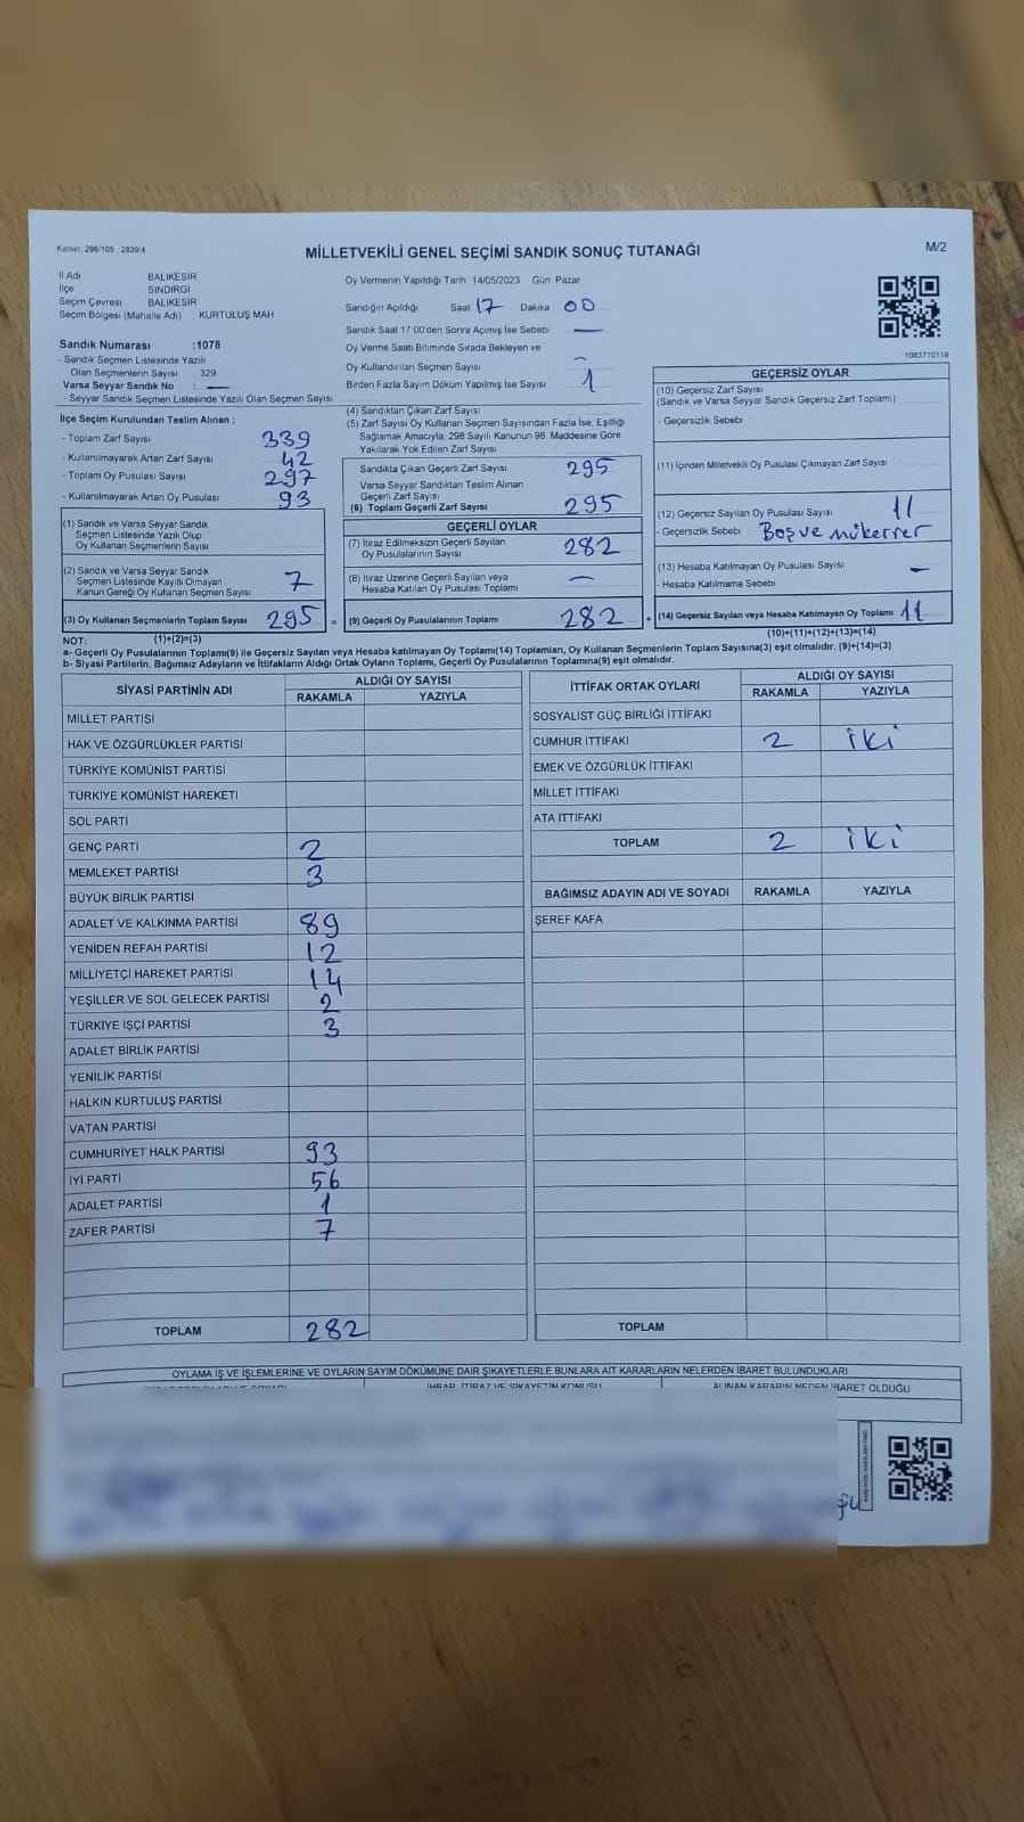 Kanun: 298/105 ; 2839/4
MİLLETVEKİLİ GENEL SEÇİMİ SANDIK SONUÇ TUTANAĞI
M/2
İl Adı BALIKESİR
İlçe SINDIRGI
Seçim Çevresi BALIKESİR
Seçim Bölgesi (Mahalle Adı) KURTULUŞ MAH
Oy Vermenin Yapıldığı Tarih 14/05/2023 Gün Pazar
Sandığın Açıldığı Saat 17 Dakika 00
Sandık Saat 17:00'den Sonra Açılmış İse Sebebi —
Oy Verme Saati Bitiminde Sırada Bekleyen ve
Oy Kullandırılan Seçmen Sayısı –
Birden Fazla Sayım Döküm Yapılmış İse Sayısı 1
Sandık Numarası :1078
- Sandık Seçmen Listesinde Yazılı
Olan Seçmenlerin Sayısı 329
Varsa Seyyar Sandık No : —
- Seyyar Sandık Seçmen Listesinde Yazılı Olan Seçmen Sayısı
İlçe Seçim Kurulundan Teslim Alınan ;
- Toplam Zarf Sayısı 339
- Kullanılmayarak Artan Zarf Sayısı 42
- Toplam Oy Pusulası Sayısı 297
- Kullanılmayarak Artan Oy Pusulası 93
(1) Sandık ve Varsa Seyyar Sandık
Seçmen Listesinde Yazılı Olup
Oy Kullanan Seçmenlerin Sayısı
(2) Sandık ve Varsa Seyyar Sandık
Seçmen Listesinde Kayıtlı Olmayan
Kanun Gereği Oy Kullanan Seçmen Sayısı 7
(3) Oy Kullanan Seçmenlerin Toplam Sayısı 295 =
(4) Sandıktan Çıkan Zarf Sayısı
(5) Zarf Sayısı Oy Kullanan Seçmen Sayısından Fazla İse, Eşitliği
Sağlamak Amacıyla; 298 Sayılı Kanunun 98. Maddesine Göre
Yakılarak Yok Edilen Zarf Sayısı
Sandıkta Çıkan Geçerli Zarf Sayısı 295
Varsa Seyyar Sandıktan Teslim Alınan
Geçerli Zarf Sayısı
(6) Toplam Geçerli Zarf Sayısı 295
GEÇERLİ OYLAR
(7) İtiraz Edilmeksizin Geçerli Sayılan
Oy Pusulalarının Sayısı 282
(8) İtiraz Üzerine Geçerli Sayılan veya
Hesaba Katılan Oy Pusulası Toplamı —
(9) Geçerli Oy Pusulalarının Toplamı 282 +
1083710119
GEÇERSİZ OYLAR
(10) Geçersiz Zarf Sayısı
(Sandık ve Varsa Seyyar Sandık Geçersiz Zarf Toplamı)
- Geçersizlik Sebebi
(11) İçinden Milletvekili Oy Pusulası Çıkmayan Zarf Sayısı
(12) Geçersiz Sayılan Oy Pusulası Sayısı 11
- Geçersizlik Sebebi Boş ve mükerrer
(13) Hesaba Katılmayan Oy Pusulası Sayısı –
- Hesaba Katılmama Sebebi
(14) Geçersiz Sayılan veya Hesaba Katılmayan Oy Toplamı 11
NOT: (1)+(2)=(3)
(10)+(11)+(12)+(13)=(14)
a- Geçerli Oy Pusulalarının Toplamı(9) ile Geçersiz Sayılan veya Hesaba katılmayan Oy Toplamı(14) Toplamları, Oy Kullanan Seçmenlerin Toplam Sayısına(3) eşit olmalıdır. (9)+(14)=(3)
b- Siyasi Partilerin, Bağımsız Adayların ve İttifakların Aldığı Ortak Oyların Toplamı, Geçerli Oy Pusulalarının Toplamına(9) eşit olmalıdır.
SİYASİ PARTİNİN ADI ALDIĞI OY SAYISI
RAKAMLA YAZIYLA
MİLLET PARTİSİ
HAK VE ÖZGÜRLÜKLER PARTİSİ
TÜRKİYE KOMÜNİST PARTİSİ
TÜRKİYE KOMÜNİST HAREKETİ
SOL PARTİ
GENÇ PARTİ 2
MEMLEKET PARTİSİ 3
BÜYÜK BİRLİK PARTİSİ
ADALET VE KALKINMA PARTİSİ 89
YENİDEN REFAH PARTİSİ 12
MİLLİYETÇİ HAREKET PARTİSİ 14
YEŞİLLER VE SOL GELECEK PARTİSİ 2
TÜRKİYE İŞÇİ PARTİSİ 3
ADALET BİRLİK PARTİSİ
YENİLİK PARTİSİ
HALKIN KURTULUŞ PARTİSİ
VATAN PARTİSİ
CUMHURİYET HALK PARTİSİ 93
İYİ PARTİ 56
ADALET PARTİSİ 1
ZAFER PARTİSİ 7
TOPLAM 282
İTTİFAK ORTAK OYLARI ALDIĞI OY SAYISI
RAKAMLA YAZIYLA
SOSYALİST GÜÇ BİRLİĞİ İTTİFAKI
CUMHUR İTTİFAKI 2 iki
EMEK VE ÖZGÜRLÜK İTTİFAKI
MİLLET İTTİFAKI
ATA İTTİFAKI
TOPLAM 2 iki
BAĞIMSIZ ADAYIN ADI VE SOYADI RAKAMLA YAZIYLA
ŞEREF KAFA
TOPLAM
OYLAMA İŞ VE İŞLEMLERİNE VE OYLARIN SAYIM DÖKÜMÜNE DAİR ŞİKAYETLERLE BUNLARA AİT KARARLARIN NELERDEN İBARET BULUNDUKLARI
İHBAR, İTİRAZ VE ŞİKAYETİN KONUSU ALINAN KARARIN NEDEN İBARET OLDUĞU